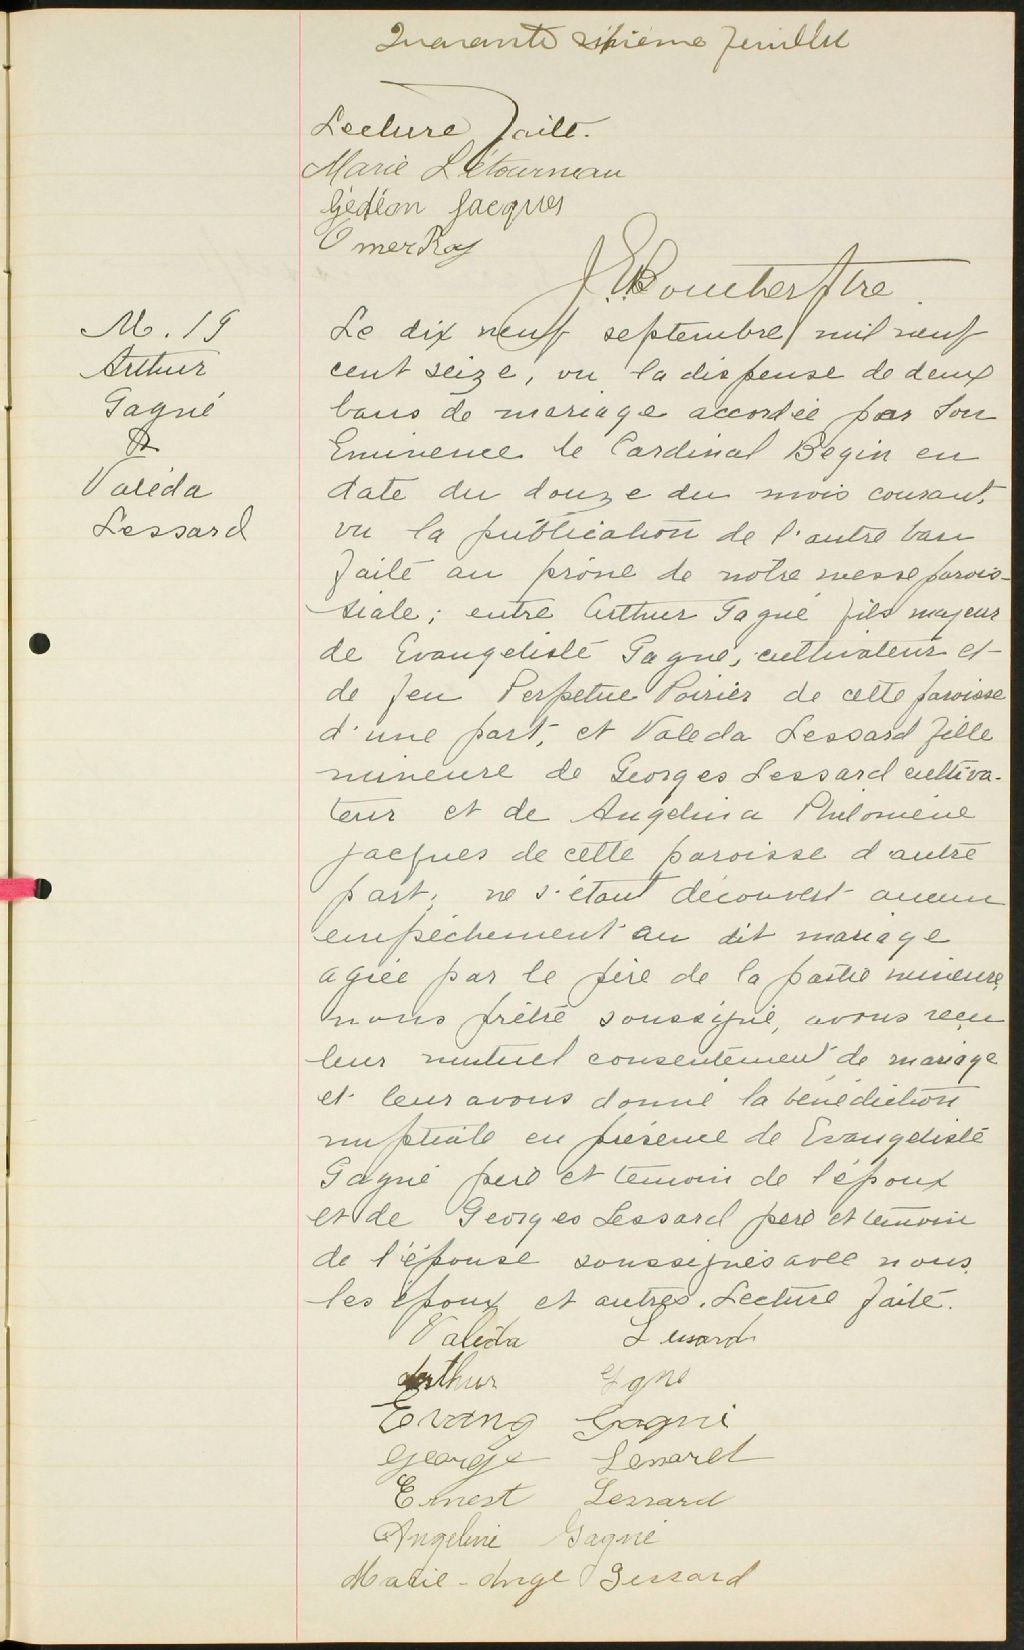 Quarante sixième feuillet
Lecture faite.
Marie Létourneau
Gédéon Jacques
Omer Roy
J. E. Boucher Ptre
M. 19
Arthur
Gagné
&
Valéda
Lessard
Le dix neuf septembre mil neuf
cent seize, vu la dispense de deux
bans de mariage accordée par Son
Eminence le Cardinal Begin en
date du douze du mois courant,
vu la publication de l'autre ban
faite au prône de notre messe parois-
siale; entre Arthur Gagné fils majeur
de Evangeliste Gagné, cultivateur et
de feu Perpetue Poirier de cette paroisse
d'une part, et Valeda Lessard fille
mineure de Georges Lessard cultiva-
teur et de Angelina Philomène
Jacques de cette paroisse d'autre
part; ne s'étant découvert aucun
empêchement au dit mariage
agiée par le père de la partie mineure,
nous prêtre soussigné, avons reçu
leur mutuel consentement de mariage
et leur avons donné la bénédiction
nuptiale en présence de Evangeliste
Gagné père et temoin de l'époux
et de Georges Lessard père et temoin
de l'épouse soussignés avec nous,
les époux et autres. Lecture faite.
Valéda Lessard
Arthur Gagne
Evang Gagné
George Lessard
Ernest Lessard
Angeline Gagné
Marie-Ange Lessard